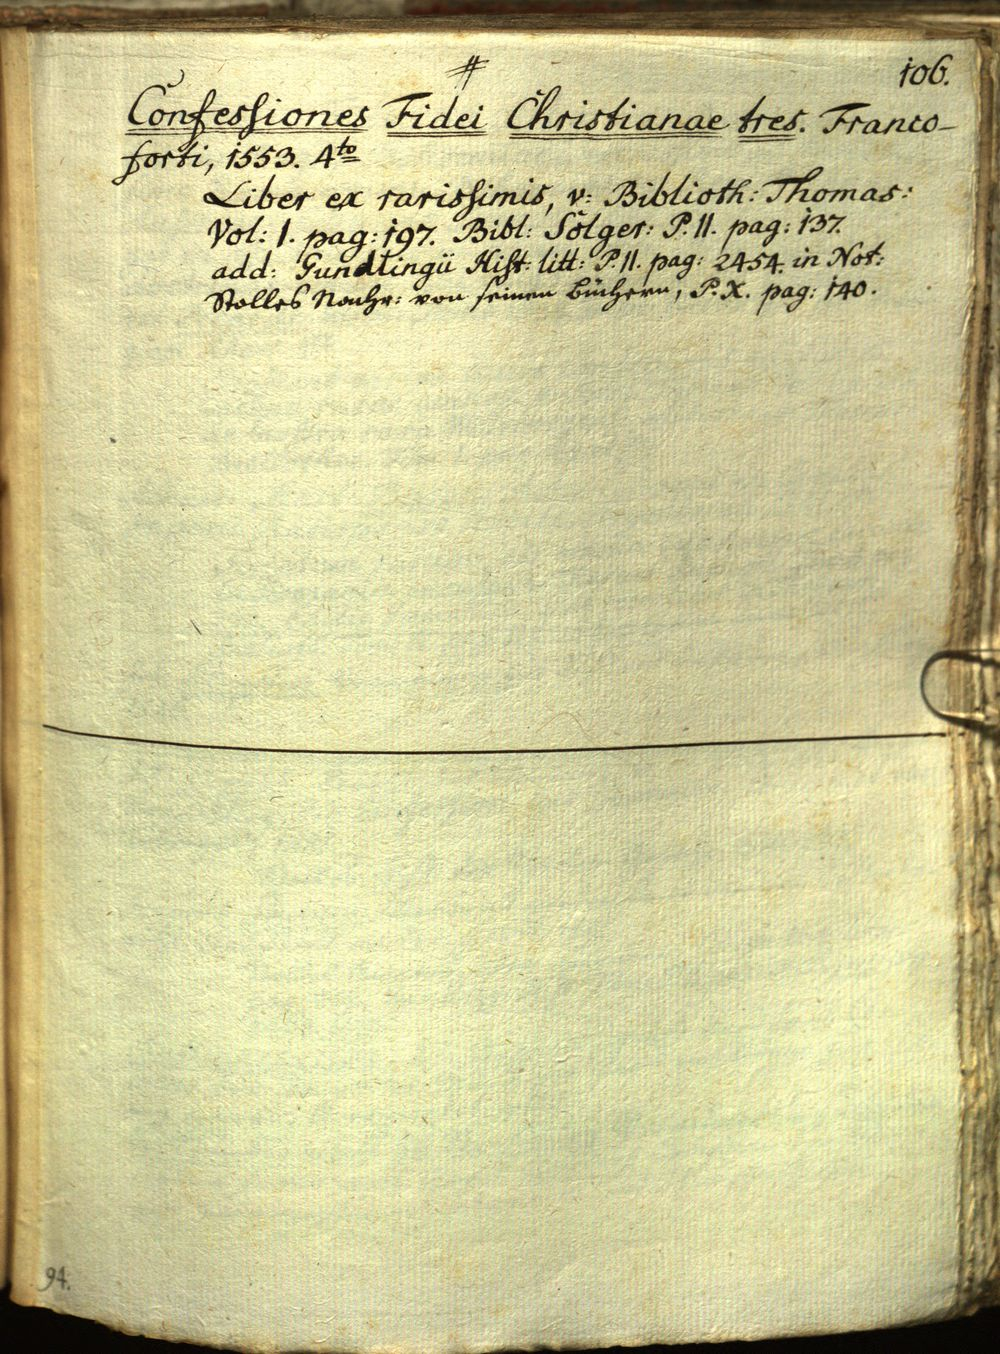 #
106.
Confessiones Fidei Christianae tres. Franco-
forti, 1553. 4to
Liber ex rarissimis, v: Biblioth: Thomas:
Vol: 1. pag: 197. Bibl: Solger: P. II. pag: 137.
add: Gundlingii Hist: litt: P. II. pag: 2454. in Not:
Stolles Nachr: von seinen Büchern, P. X. pag: 140.
94.